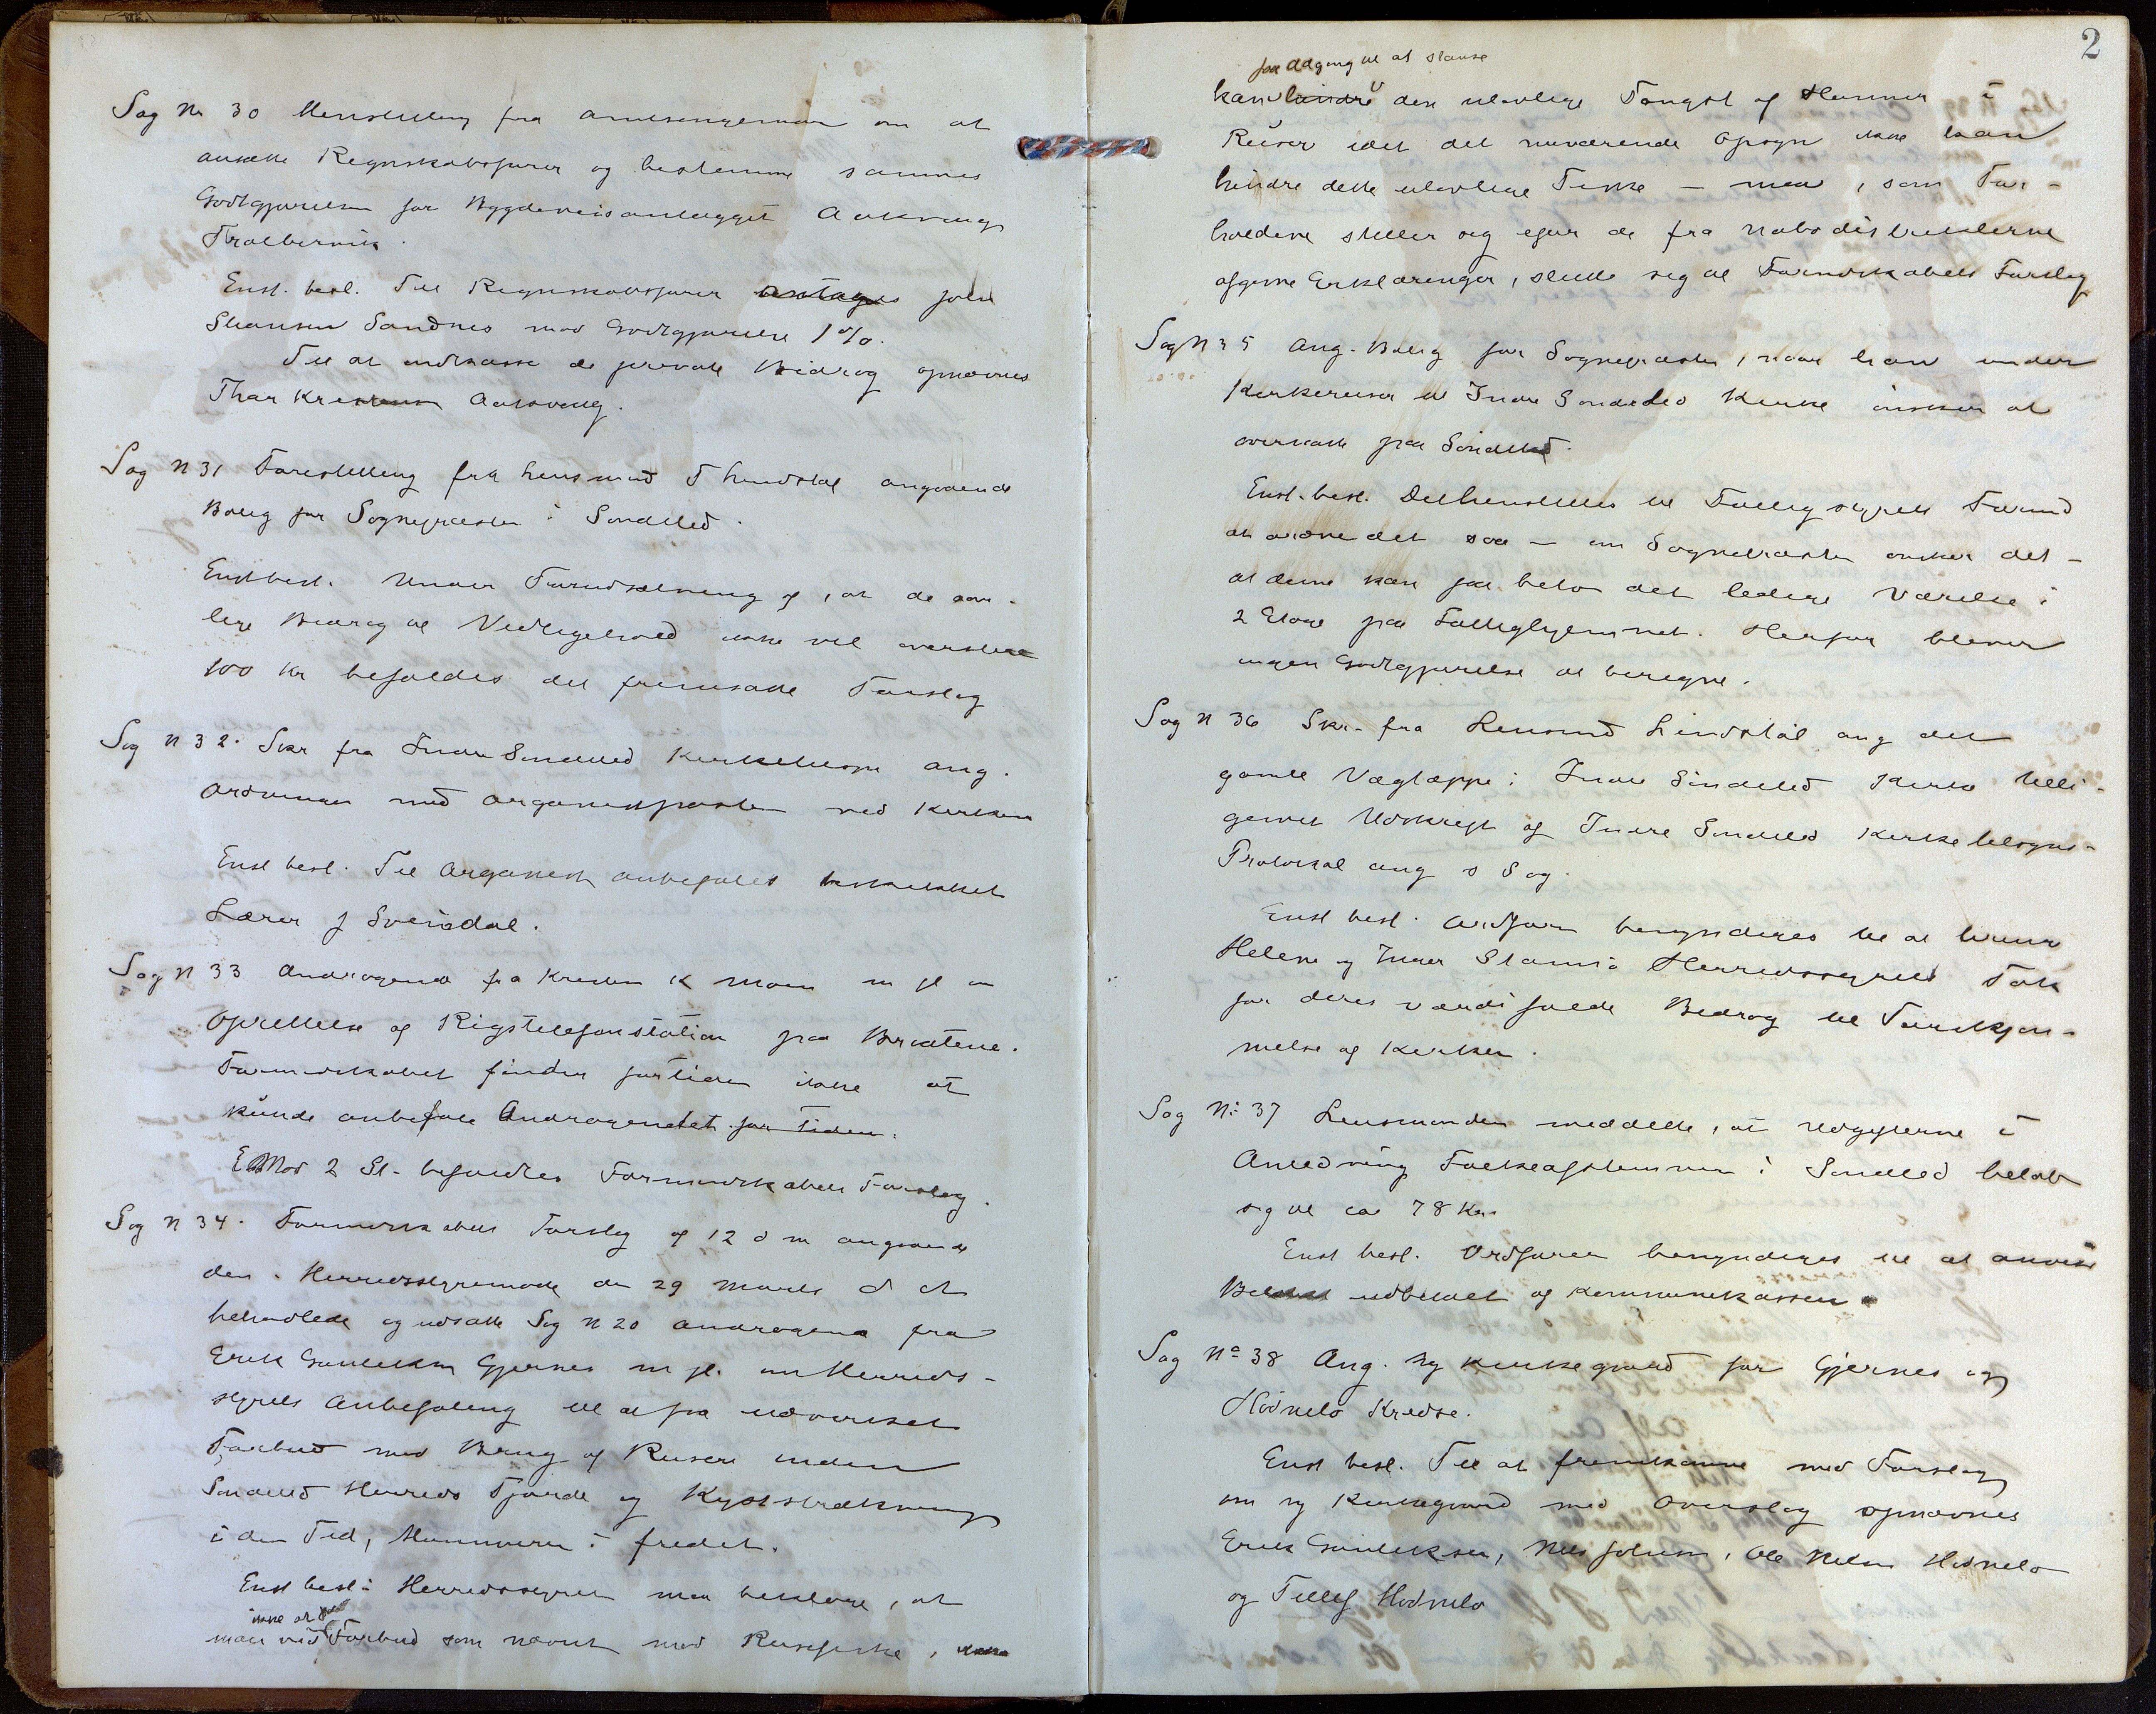 Sag Nr 30 Henstilling fra Amtsingeniøren om at
ansætte Regnskabsfører og bestemme sammes
Godtgjørelse for Bygdeveisanlægget Aakvaag
Trolbervik.
Enst. besl. Til Regnskabsfører antages John
Stiansen Sandnes mod Godtgjørelse 1%.
Til at indkassere de private Bidrag opnævnes
Thor Kristensen Aakvaag.
Sag N 31 Forestilling fra Lensmand T Lindstøl angaaende
Bolig for Sognepræsten i Søndeled.
Enst besl. Under Forudsætning af, at de aar-
lige Bidrag til Vedligehold ikke vil overstige
100 Kr befaldes det fremsatte Forslag
Sag N 32. Skr fra Indre Søndeled Kirketilsyn ang.
Ordningen med Organistposten ved Kirken
Enst besl. Til Organist anbefales
Lærer J Sveisdal.
Sag N 33 Andragende fra Kristen K Moen m fl om
Oprettelse af Rigstelefonstation paa Bråtene.
Formandskabet finder fortiden ikke at
kunde anbefale Andragendet for Tiden.
Mod 2 St. befaldtes Formandskabets Forslag.
Sag N 34. Formandskabets Forslag af 12 d m angaaende
den i Herredsstyremøde den 29 Marts d A
behandlede og udsatte Sag N 20 Andragende fra
Erik Gundersen Gjernes m fl. om Herreds-
styrets Anbefaling til at faa udvirket
Forbud mod Brug af Ruser inden
Søndeled Herreds Fjorde og Kyststrækning
i den Tid, Hummeren i fredet.
Enst besl: Herredsstyret maa beklage, at
ikke at
man ved Forbud som nævnt mod Rusefiske, ikke
2
faa Adgang til at stanse
kan hindre den ulovlige Fangst af Hummer i
Ruser idet det nuværende Opsyn ikke kan
hindre dette ulovlige Fiske – maa, som For-
holdene stiller sig efter de fra Nabodistrikterne
afgivne Erklæringer, slutte sig til Formandskabets Forslag
Sag N 35 Ang. Bolig for Sognepræsten, naar han under
Kirkereiser til Indre Søndeled Kirke ønsker at
overnatte paa Søndeled.
Enst. besl. Det henstilles til Fattigstyrets Formand
at ordne det saa – om Sognepræsten ønsker det –
at denne kan faa beboe det ledige Værelse i
2 Etage paa Fattighjemmet. Herfor bliver
ingen Godtgjørelse at beregne.
Sag N 36 Skr. fra Lensmd Lindstøl ang det
gamle Vægtæppe i Indre Søndeled Kirke tilli-
gemed Udskrift af Indre Søndeled Kirketilsyns-
Protokol ang s Sag.
Enst besl. Ordføren bemyndiges til at bringe
Helene og Inger Stamsø Herredsstyrets Tak
for deres værdifulde Bidrag til Forskjøn-
nelse af Kirken.
Sag No 37 Lensmanden meddelte, at Udgifterne i
Anledning Folkeafstemmen i Søndeled beløb
sig til ca 78 Kr.
Enst besl. Ordføreren bemyndiges til at anvise
Beløbet udbetalt af Kommunekassen.
Sag No 38 Ang. Ny Kirkegaard for Gjernes og
Hødnebø Kredse.
Enst besl. Til at fremkomme med Forslag
om ny Kirkegaard med Overslag opnævnes
Erik Gundersen, Nils Johnsen, Ole Nilsen Hødnebø
og Tellef Hødnebø